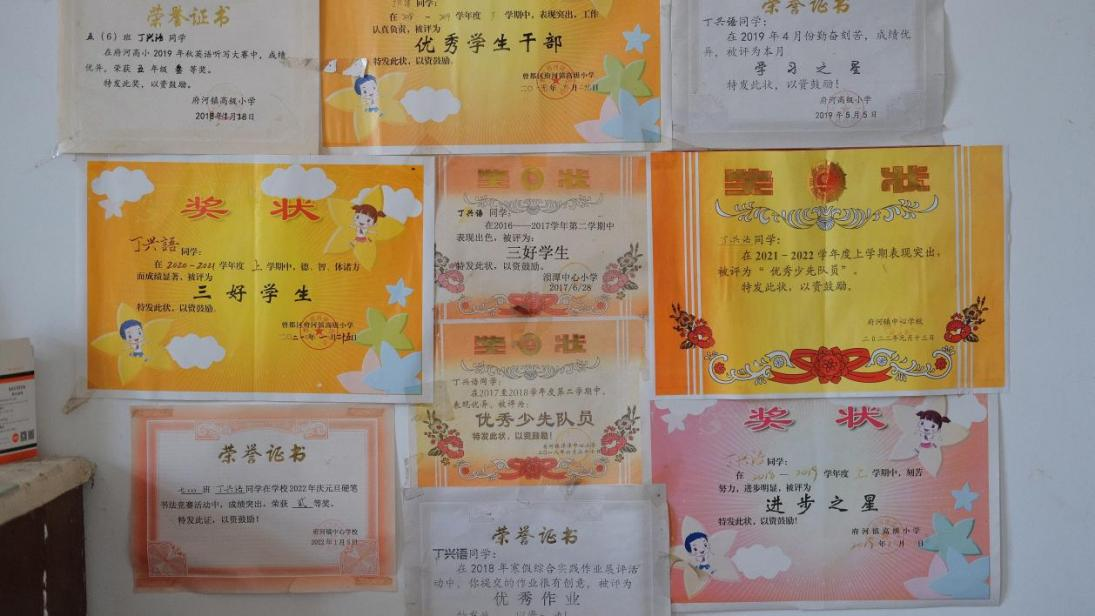 荣誉证书
五（6）班 丁兴语 同学
在府河高小 2019 年秋英语听写大赛中，成绩
优异，荣获 五 年级 叁 等奖。
特发此奖，以资鼓励。
府河镇高级小学
同学：
学年度 学期中，表现突出，工作
认真负责，被评为
优秀学生干部
特发此状，以资鼓励。
曾都区府河镇高级小学
荣誉证书
丁兴语同学：
在 2019 年 4 月份勤奋刻苦，成绩优
异，被评为本月
学习之星
特发此状，以资鼓励！
府河高级小学
2019 年 5 月 5 日
奖状
丁兴語 同学：
在 2020-2021 学年度 上 学期中，德、智、体诸方
面成绩显著，被评为
三好学生
特发此状，以资鼓励。
曾都区府河镇高级小学
奖状
丁兴语 同学：
在2016——2017学年第二学期中
表现出色，被评为：
三好学生
特发此状，以资鼓励。
涢潭中心小学
2017/6/28
奖状
丁兴语同学：
在 2021－2022 学年度上学期表现突出，
被评为“ 优秀少先队员”。
特发此状，以资鼓励。
府河镇中心学校
二〇二二年元月十三日
奖状
丁兴语同学：
在2017至2018学年度第二学期中，
表现优异，被评为：
优秀少先队员
特发此状，以资鼓励！
荣誉证书
班 丁兴语 同学在学校2022年庆元旦硬笔
书法竞赛活动中，成绩突出，荣获 贰 等奖。
特发此证，以资鼓励！
府河镇中心学校
2022年1月5日
荣誉证书
丁兴语同学：
在 2018 年寒假综合实践作业展评活
动中，你提交的作业很有创意，被评为
优秀作业
奖状
丁兴语 同学：
在 2018 — 2019 学年度 学期中，刻苦
努力，进步明显，被评为
进步之星
特发此状，以资鼓励！
府河镇高级小学